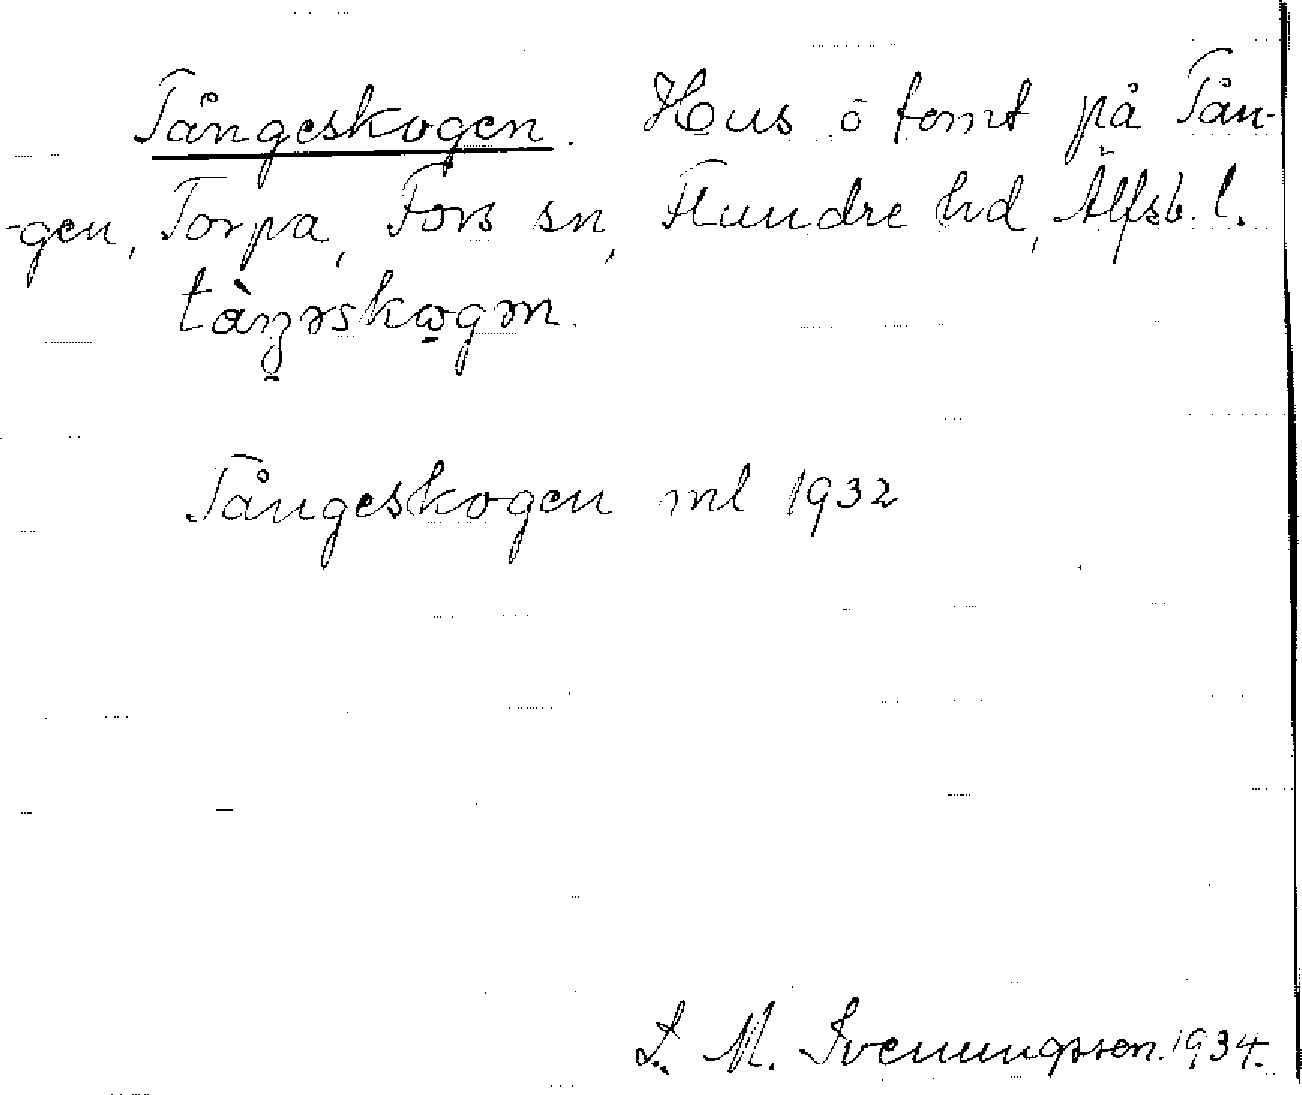 Tångeskogen. Hus ō tomt på Tån-
-gen, Torpa, Fors sn, Flundre hd, Älfsb. l.
Tångeskogen ml 1932
L. M. Svenungsson. 1934.